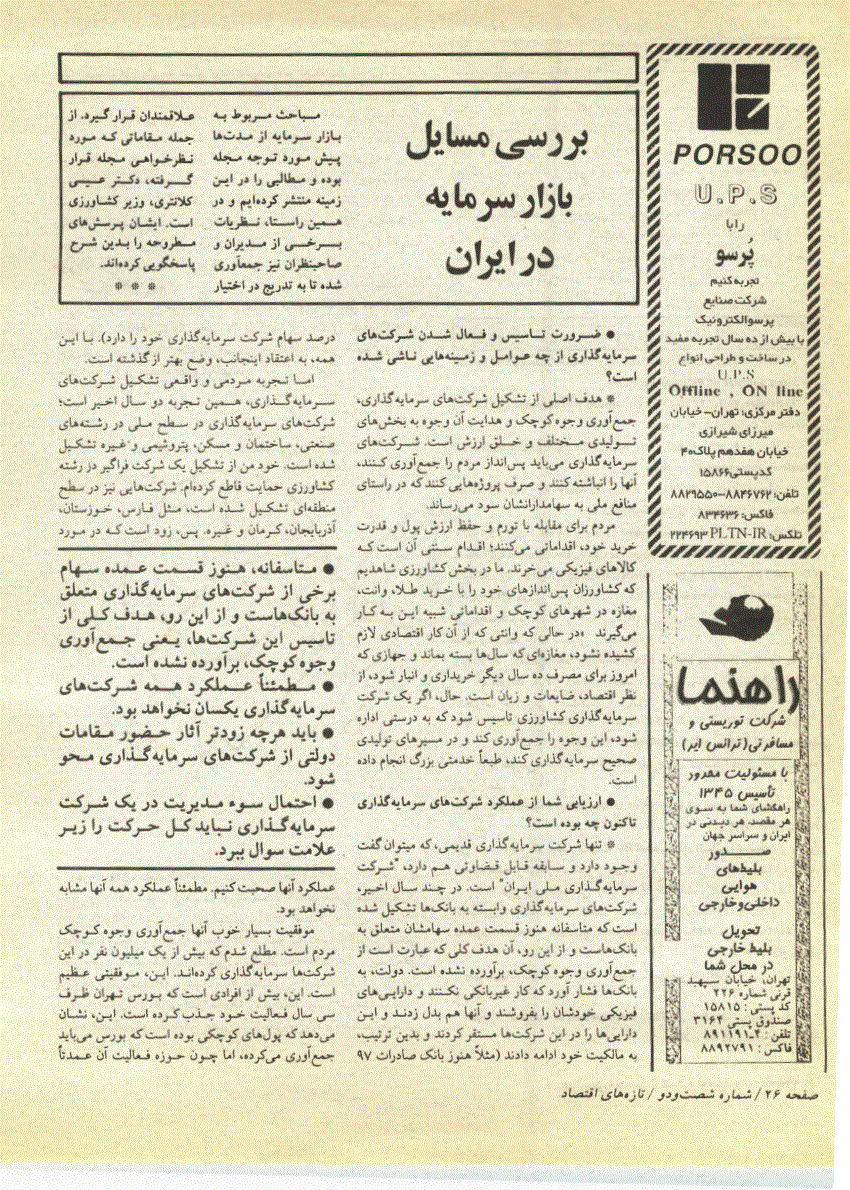 بررسی مسایل
بازار سرمایه
در ایران
مباحث مربوط به
بازار سرمایه از مدت‌ها
پیش مورد توجه مجله
بوده و مطالبی را در این
زمینه منتشر کرده‌ایم و در
همین راستا، نظریات
برخی از مدیران و
صاحبنظران نیز جمعآوری
شده تا به تدریج در اختیار
علاقمندان قرار گیرد. از
جمله مقاماتی که مورد
نظرخواهی مجله قرار
گرفته، دکتر عیسی
کلانتری، وزیر کشاورزی
است. ایشان پرسش‌های
مطروحه را بدین شرح
پاسخگویی کرده‌اند.
* * *
● ضرورت تاسیس و فعال شدن شرکت‌های
سرمایه‌گذاری از چه عوامل و زمینه‌هایی ناشی شده
است؟
* هدف اصلی از تشکیل شرکت‌های سرمایه‌گذاری،
جمع‌آوری وجوه کوچک و هدایت آن وجوه به بخش‌های
تولیدی مختلف و خلق ارزش است. شرکت‌های
سرمایه‌گذاری می‌باید پس‌انداز مردم را جمع‌آوری کنند،
آنها را انباشته کنند و صرف پروژه‌هایی کنند که در راستای
منافع ملی به سهامدارانشان سود می‌رساند.
مردم برای مقابله با تورم و حفظ ارزش پول و قدرت
خرید خود، اقداماتی می‌کنند؛ اقدام سنتی آن است که
کالاهای فیزیکی می‌خرند. ما در بخش کشاورزی شاهدیم
که کشاورزان پس‌اندازهای خود را با خرید طلا، وانت،
مغازه در شهرهای کوچک و اقداماتی شبیه این به کار
می‌گیرند *در حالی که وانتی که از آن کار اقتصادی لازم
کشیده نشود، مغازه‌ای که سال‌ها بسته بماند و جهازی که
امروز برای مصرف ده سال دیگر خریداری و انبار شود، از
نظر اقتصاد، ضایعات و زیان است. حال، اگر یک شرکت
سرمایه‌گذاری کشاورزی تاسیس شود که به درستی اداره
شود، این وجوه را جمع‌آوری کند و در مسیرهای تولیدی
صحیح سرمایه‌گذاری کند، طبعاً خدمتی بزرگ انجام داده
است.
● ارزیابی شما از عملکرد شرکت‌های سرمایه‌گذاری
تاکنون چه بوده است؟
* تنها شرکت سرمایه‌گذاری قدیمی، که میتوان گفت
وجود دارد و سابقه قابل قضاوتی هم دارد، "شرکت
سرمایه‌گذاری ملی ایران" است. در چند سال اخیر،
شرکت‌های سرمایه‌گذاری وابسته به بانک‌ها تشکیل شده
است که متاسفانه هنوز قسمت عمده سهامشان متعلق به
بانک‌هاست و از این رو، آن هدف کلی که عبارت است از
جمع‌آوری وجوه کوچک، برآورده نشده است. دولت، به
بانک‌ها فشار آورد که کار غیربانکی نکنند و دارایی‌های
فیزیکی خودشان را بفروشند و آنها هم بدل زدند و این
دارایی‌ها را در این شرکت‌ها مستقر کردند و بدین ترتیب،
به مالکیت خود ادامه دادند (مثلاً هنوز بانک صادرات ۹۷
درصد سهام شرکت سرمایه‌گذاری خود را دارد). با این
همه، به اعتقاد اینجانب، وضع بهتر از گذشته است.
اما تجربه مردمی و واقعی تشکیل شرکت‌های
سرمایه‌گذاری، همین تجربه دو سال اخیر است؛
شرکت‌های سرمایه‌گذاری در سطح ملی در رشته‌های
صنعتی، ساختمان و مسکن، پتروشیمی و غیره تشکیل
شده است. خود من از تشکیل یک شرکت فراگیر در رشته
کشاورزی حمایت قاطع کرده‌ام. شرکت‌هایی نیز در سطح
منطقه‌ای تشکیل شده است، مثل فارس، خوزستان،
آذربایجان، کرمان و غیره. پس، زود است که در مورد
● متاسفانه، هنوز قسمت عمده سهام
برخی از شرکت‌های سرمایه‌گذاری متعلق
به بانک‌هاست و از این رو، هدف کلی از
تاسیس این شرکت‌ها، یعنی جمع‌آوری
وجوه کوچک، برآورده نشده است.
● مطمئناً عملکرد همه شرکت‌های
سرمایه‌گذاری یکسان نخواهد بود.
● باید هرچه زودتر آثار حضور مقامات
دولتی از شرکت‌های سرمایه‌گذاری محو
شود.
● احتمال سوء مدیریت در یک شرکت
سرمایه‌گذاری نباید کل حرکت را زیر
علامت سوال ببرد.
عملکرد آنها صحبت کنیم. مطمئناً عملکرد همه آنها مشابه
نخواهد بود.
موفقیت بسیار خوب آنها جمع‌آوری وجوه کوچک
مردم است. مطلع شدم که بیش از یک میلیون نفر در این
شرکت‌ها سرمایه‌گذاری کرده‌اند. این، موفقیتی عظیم
است. این، بیش از افرادی است که بورس تهران ظرف
سی سال فعالیت خود جذب کرده است. این، نشان
می‌دهد که پول‌های کوچکی بوده است که بورس می‌باید
جمع‌آوری می‌کرده، اما چون حوزه فعالیت آن عمدتاً
PORSOO
U.P.S
را با
پُرسو
تجربه کنیم
شرکت صنایع
پرسوالکترونیک
با بیش از ده سال تجربه مفید
در ساخت و طراحی انواع
U.P.S
Offline , ON line
دفتر مرکزی: تهران- خیابان
میرزای شیرازی
خیابان هفدهم پلاک۴۰
کدپستی ۱۵۸۶۶
تلفن: ۸۸۴۶۷۶۲-۸۸۲۹۵۵۰
فاکس: ۸۳۴۶۳۶
تلکس: ۲۲۴۶۹۳ PLTN-IR
راهنما
شرکت توریستی و
مسافرتی(ترانس ایر)
با مسئولیت محدود
تأسیس ۱۳۴۵
راهگشای شما به سوی
هر مقصد، هر دیدنی در
ایران و سراسر جهان
صدور
بلیط‌های
هوایی
داخلی‌وخارجی
تحویل
بلیط خارجی
در محل شما
تهران، خیابان سپهبد
قرنی شماره ۲۲۶
کد پستی : ۱۵۸۱۵
صندوق پستی ۳۱۶۴
تلفن : ۲ـ۸۹۱۱۹۱
فاکس : ۸۸۹۲۷۹۱
صفحه ۲۶ / شماره شصت‌ودو / تازه‌های اقتصاد